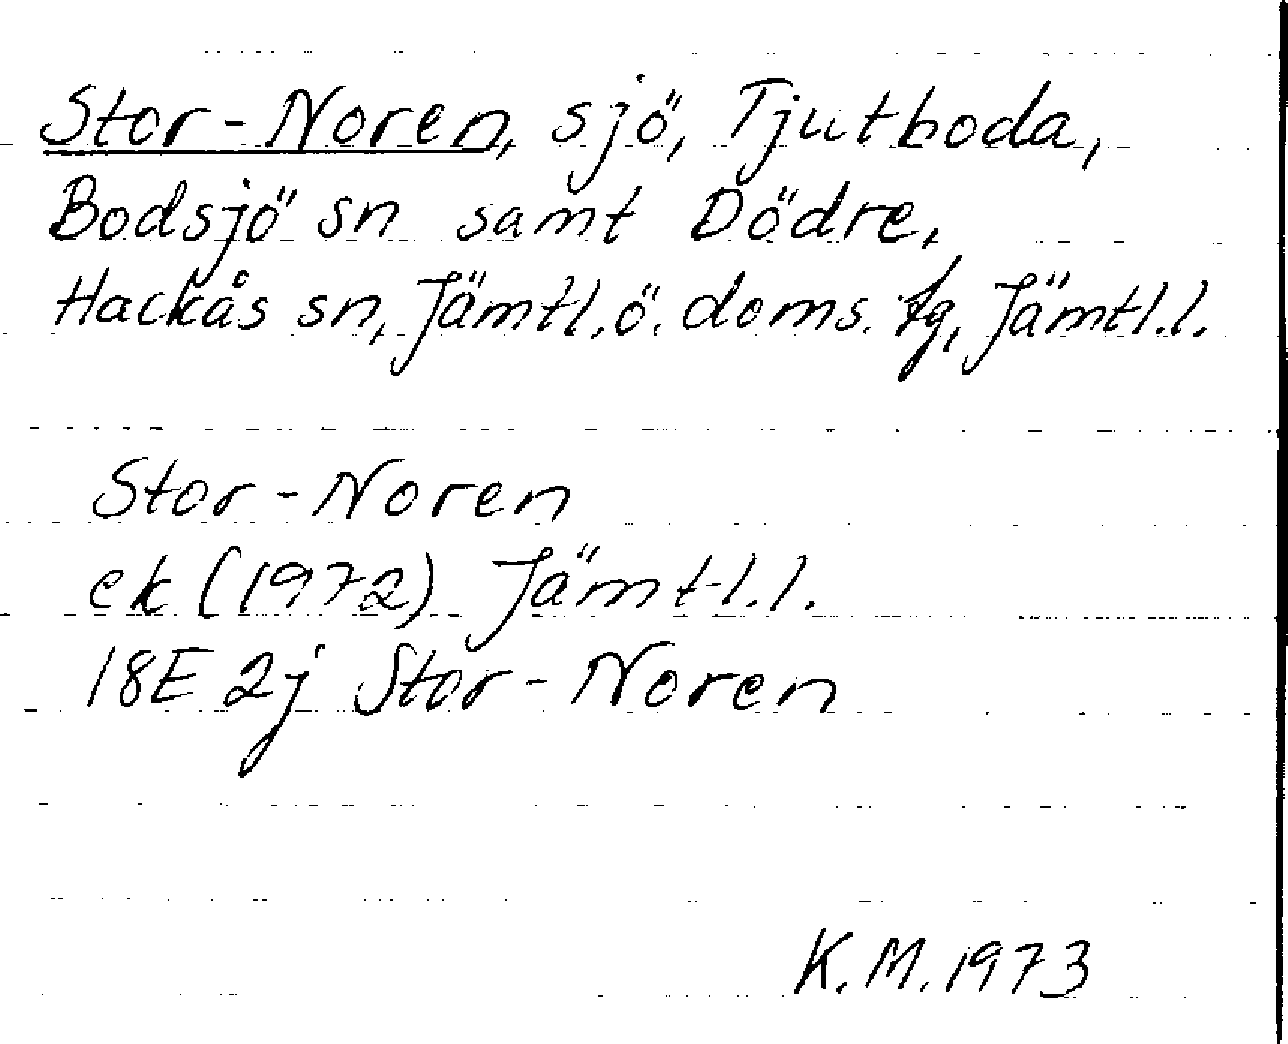 Stor-Noren, sjö, Tjutboda,
Bodsjö sn samt Dödre,
Hackås sn, Jämtl.ö. doms. tg, Jämtl.l.
Stor-Noren
ek (1972) Jämtl.l.
18E 2j Stor-Noren
K.M. 1973